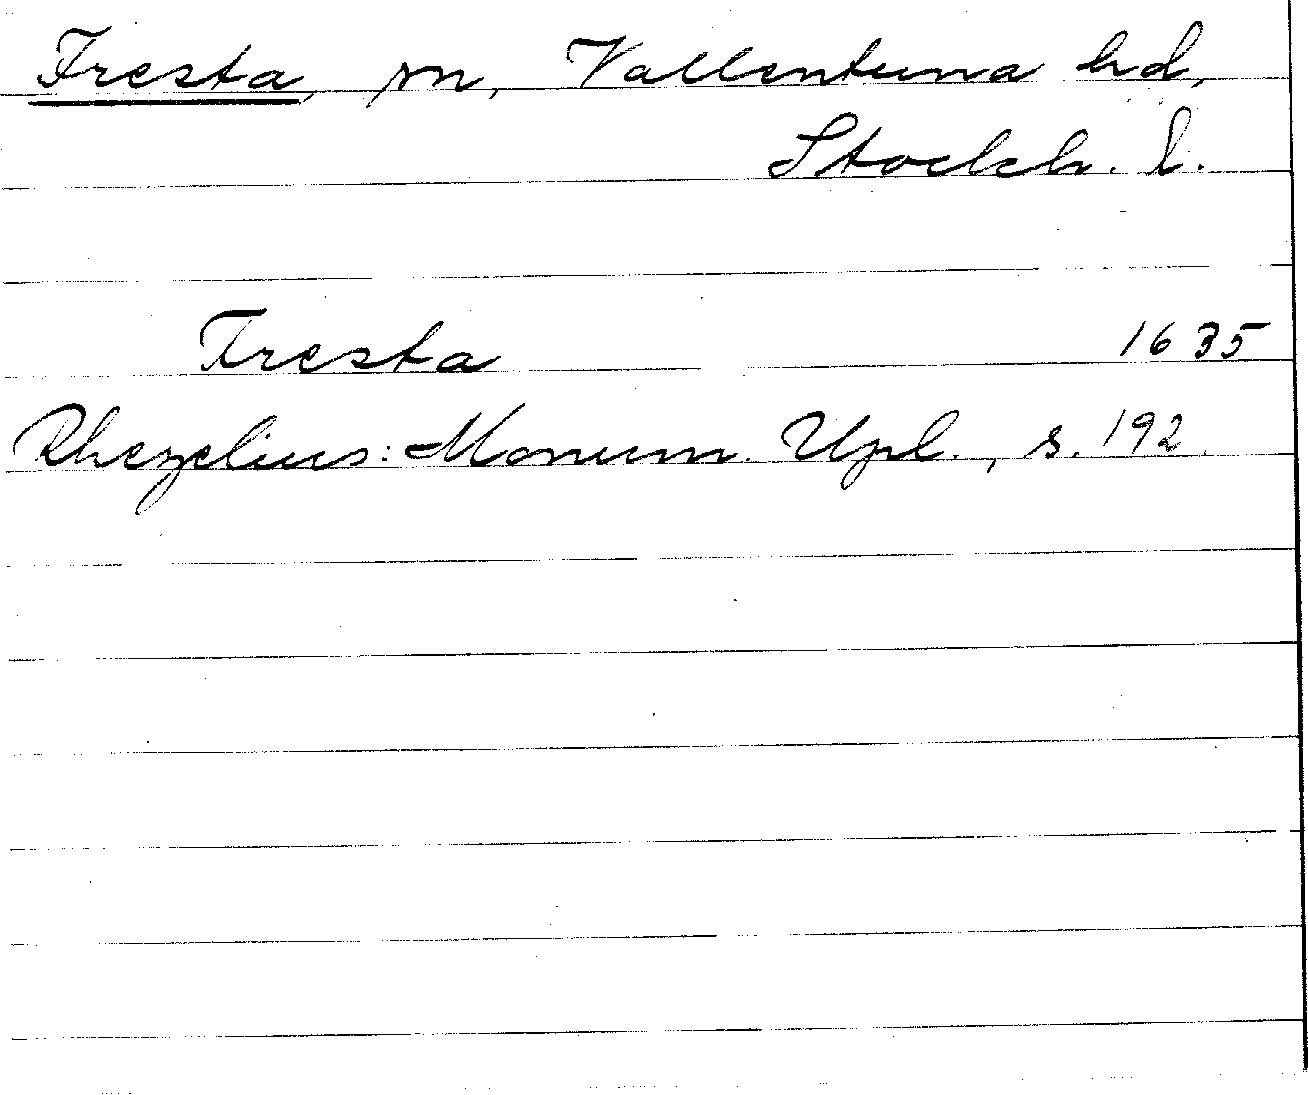 Fresta, sn, Vallentuna hd,
Stockh. l.
Fresta 1635
Rhezelius: Monum. Upl., s. 192.